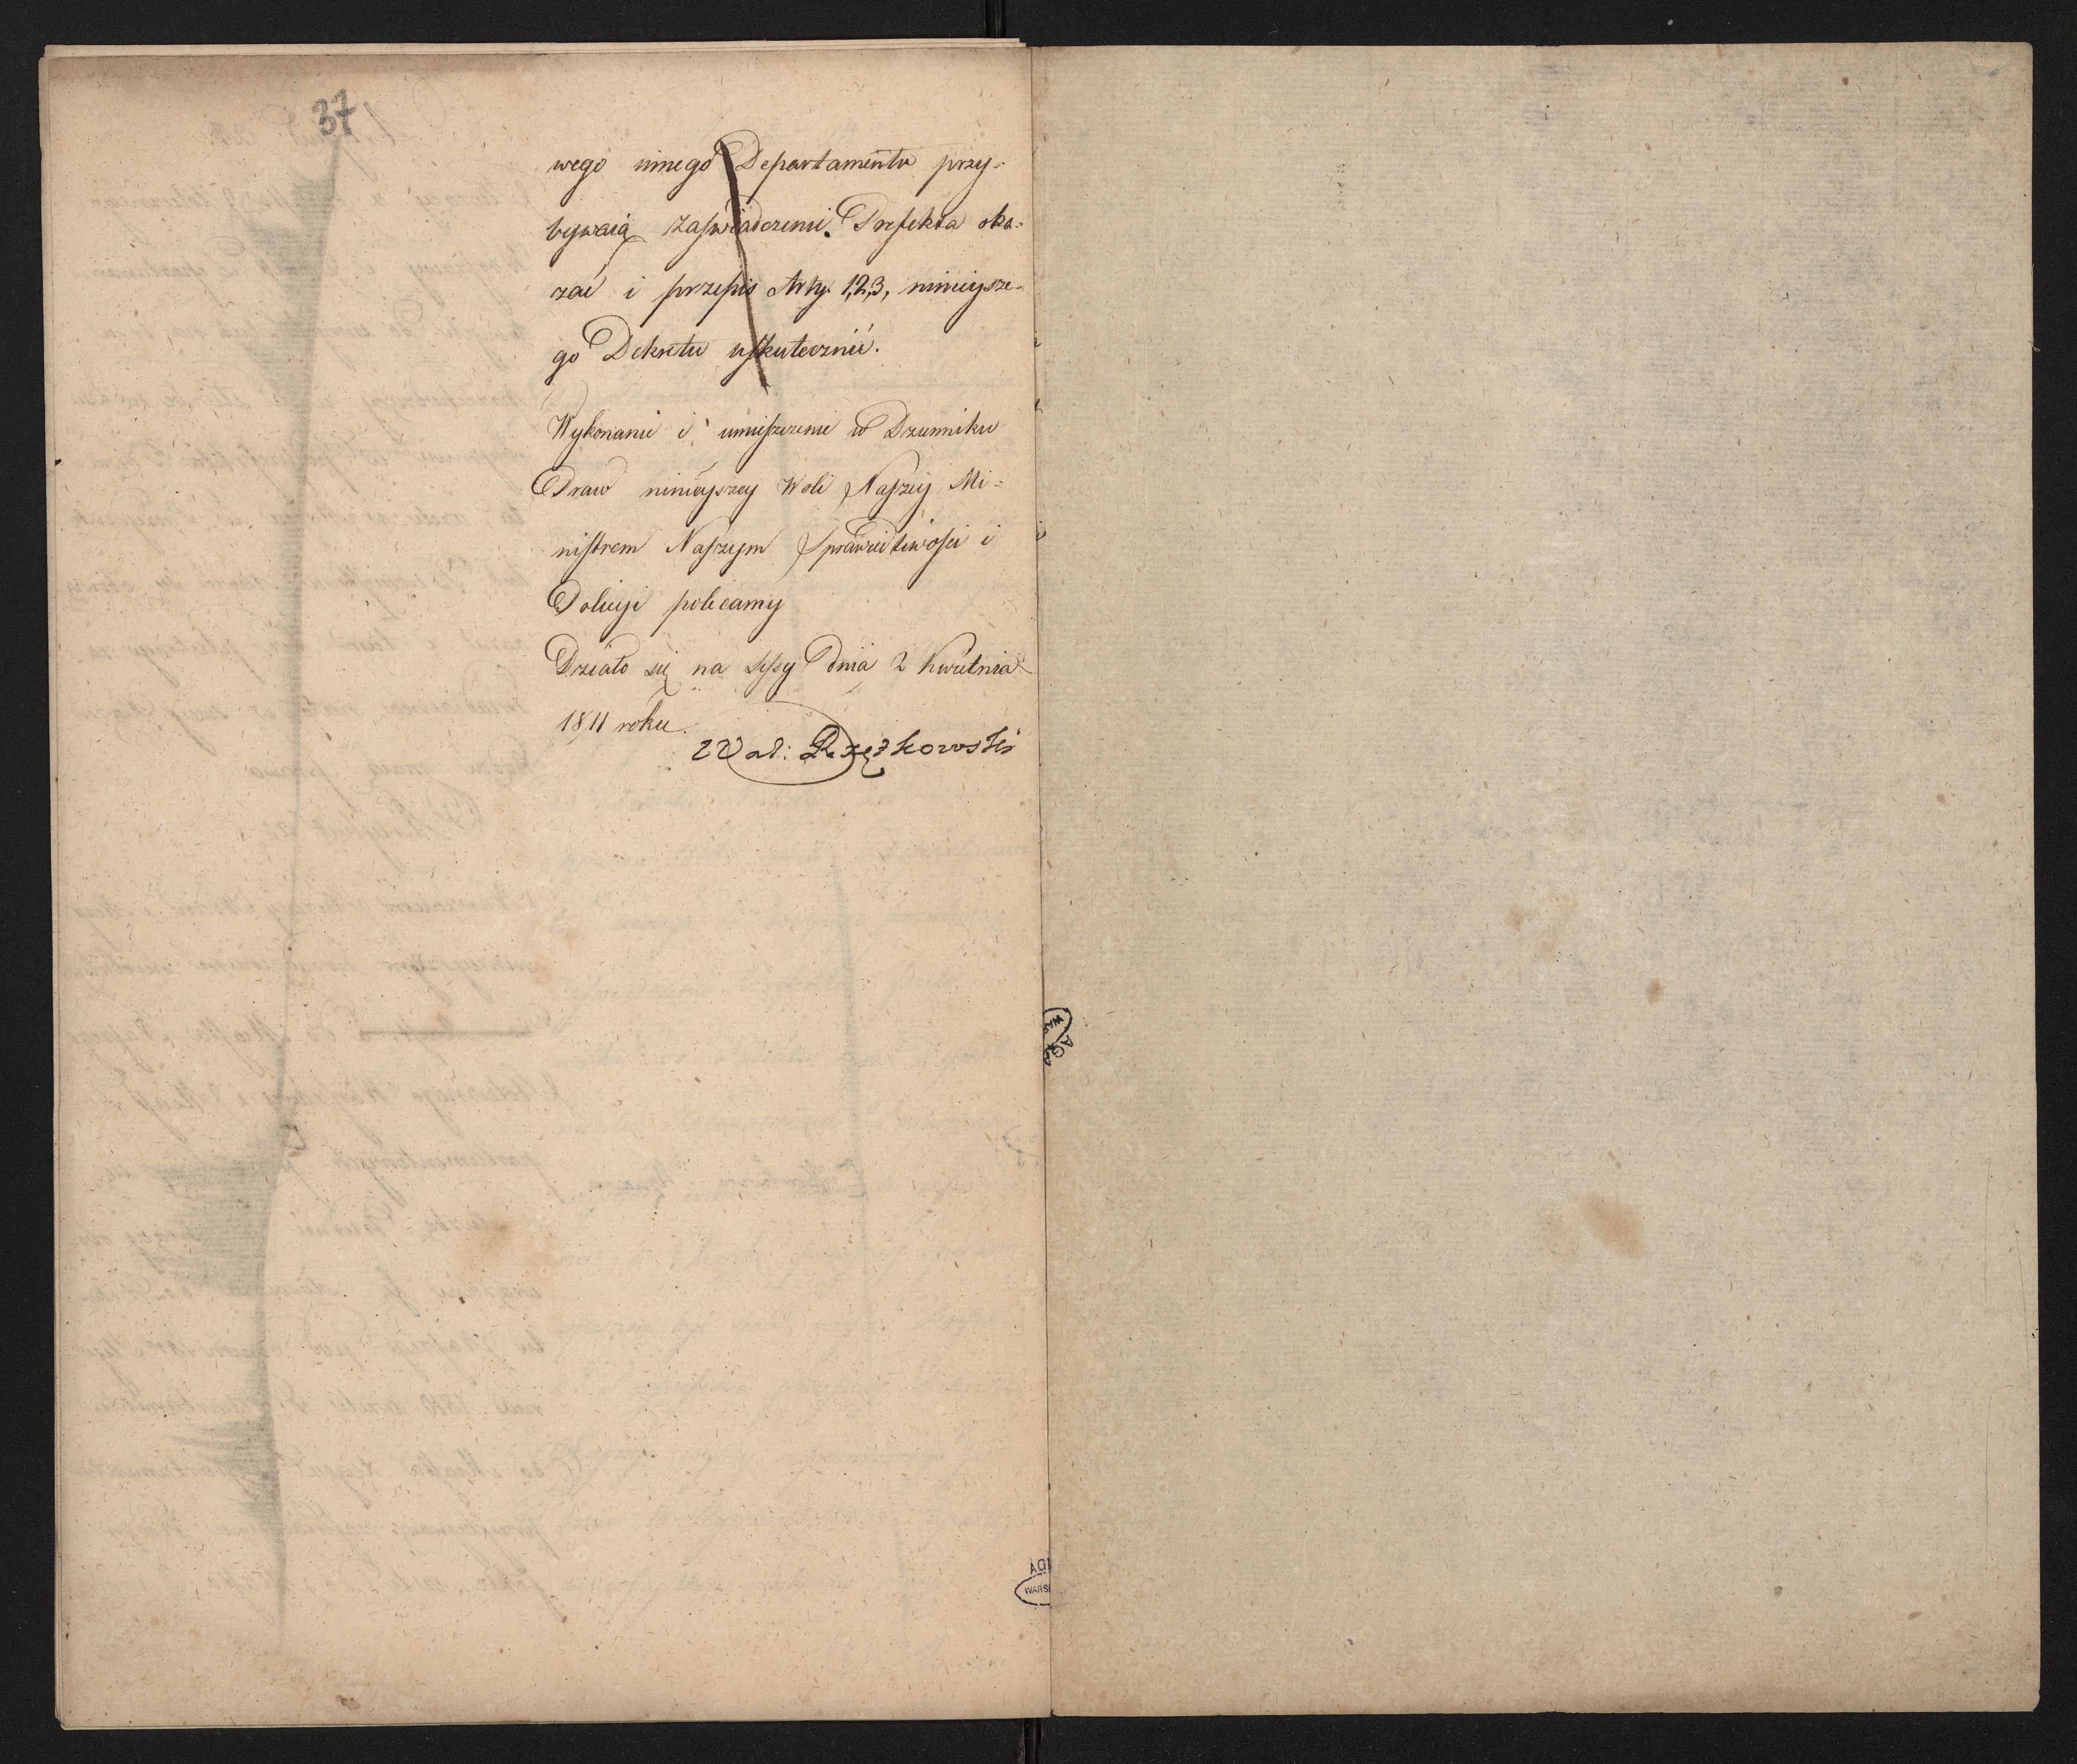 37
wego innego Departamentu przy-
bywaią zaświadczenie Prefekta oka-
zać i przepis Arty. 1, 2, 3, ninieysze-
go Dekretu uskutecznić.
Wykonanie i umieszczenie w Dzienniku
Praw ninieyszey Woli Naszey Mi-
nistrom Naszym Sprawiedliwości i
Policyi polecamy
Działo się na Sessyi dnia 2 Kwietnia
1811 roku.
Wal:
AG
WAR
AG
WARS